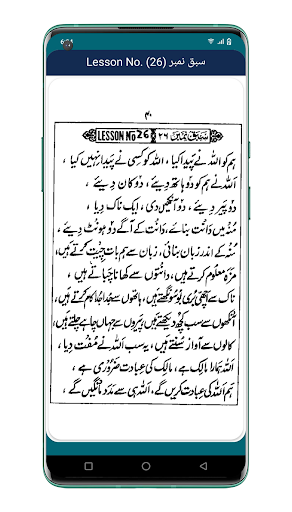 Lesson No. (26) سبق نمبر
۴۰
LESSON No 26 سبق نمبر ۲۶
ہم کو اللہ نے پیدا کیا ، اللہ کو کسی نے پیدا نہیں کیا ،
اللہ نے ہم کو دو ہاتھ دیئے ، دو کان دیئے ،
دو پیر دیئے ، دو آنکھیں دی ، ایک ناک دیا ،
منہ میں دانت بنائے ، دانت کے آگے دو ہونٹ دیئے ،
منہ کے اندر زبان بنائی ، زبان سے ہم بات چیت کرتے ہیں ،
مزہ معلوم کرتے ہیں ، دانتوں سے کھانا چباتے ہیں ،
ناک سے اچھی بری بو سونگھتے ہیں ، ہاتھوں سے سب کام کرتے ہیں ،
آنکھوں سے سب کچھ دیکھتے ہیں ، پیروں سے جہاں چاہے چلتے ہیں ،
کانوں سے آواز سنتے ہیں ، یہ سب اللہ نے مفت دیا ،
اللہ ہمارا مالک ہے ، مالک کی عبادت ضروری ہے ،
ہم اللہ کی عبادت کریں گے ، اللہ ہی سے مدد مانگیں گے ،